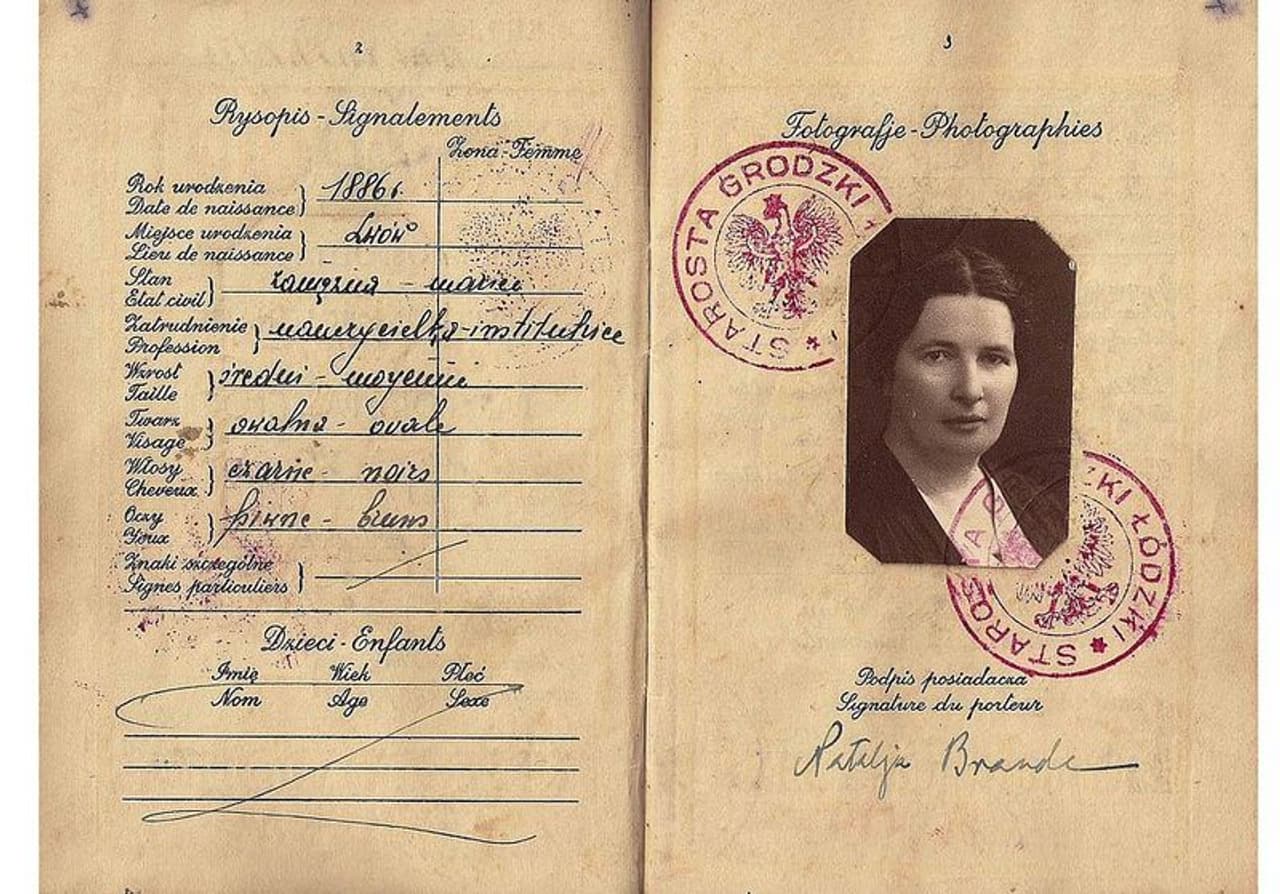 2
Rysopis - Signalements
Żona - Femme
Rok urodzenia
Date de naissance
1886 r.
Miejsce urodzenia
Lieu de naissance
Lwów
Stan
Etat civil
zamężna - mariée
Zatrudnienie
Profession
nauczycielka - institutrice
Wzrost
Taille
średni - moyenne
Twarz
Visage
owalna - ovale
Włosy
Cheveux
czarne - noirs
Oczy
Yeux
piwne - bruns
Znaki szczególne
Signes particuliers
Dzieci - Enfants
Imię Wiek Płeć
Nom Age Sexe
3
Fotografje - Photographies
STAROSTA GRODZKI
STAROSTA GRODZKI ŁÓDZKI
Podpis posiadacza
Signature du porteur
Natalja Brande